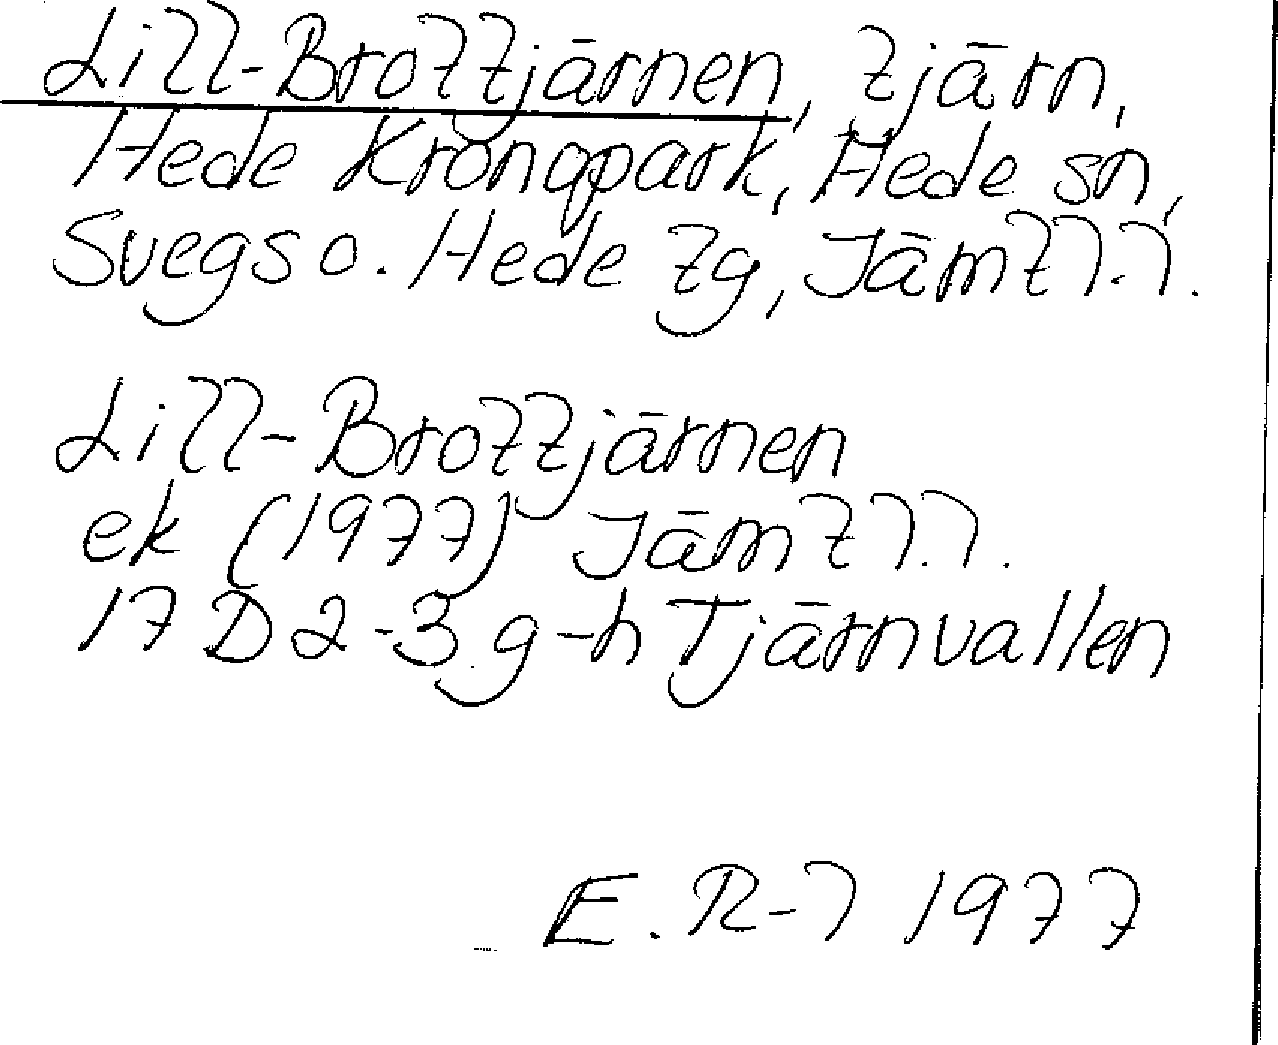 Lill-Brottjärnen, tjärn,
Hede Kronopark, Hede sn,
Svegs o. Hede tg, Jämtl.l.
Lill-Brottjärnen
ek (1977) Jämtl.l.
17 D 2-3 g-h Tjärnvallen
E. R-l 1977